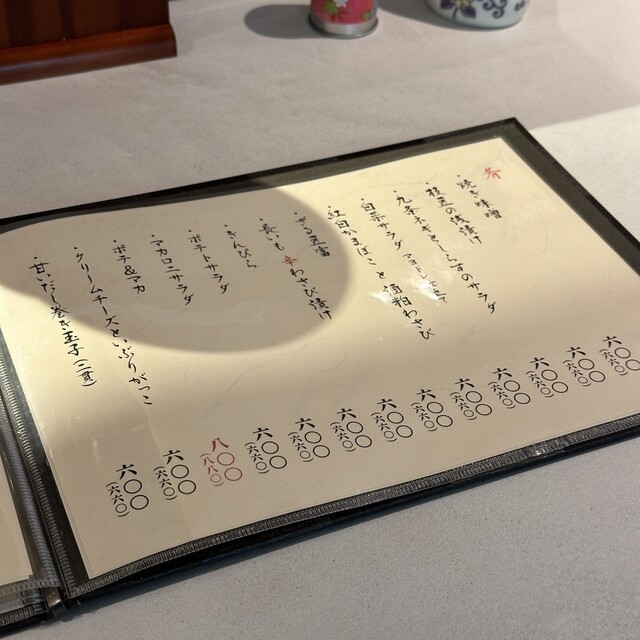 ・焼き味噌 六〇〇(六六〇)
・枝豆の浅漬け 六〇〇(六六〇)
・九条ネギとしらすのサラダ 六〇〇(六六〇)
・白菜サラダ 六〇〇(六六〇)
・紅白かまぼこと酒粕わさび 六〇〇(六六〇)
・ざる豆富 六〇〇(六六〇)
・長いも辛わさび漬け 六〇〇(六六〇)
・きんぴら 六〇〇(六六〇)
・ポテトサラダ 六〇〇(六六〇)
・マカロニサラダ 六〇〇(六六〇)
・ポテ&マカ 八〇〇(八八〇)
・クリームチーズといぶりがっこ 六〇〇(六六〇)
・甘いだし巻き玉子(二貫) 六〇〇(六六〇)